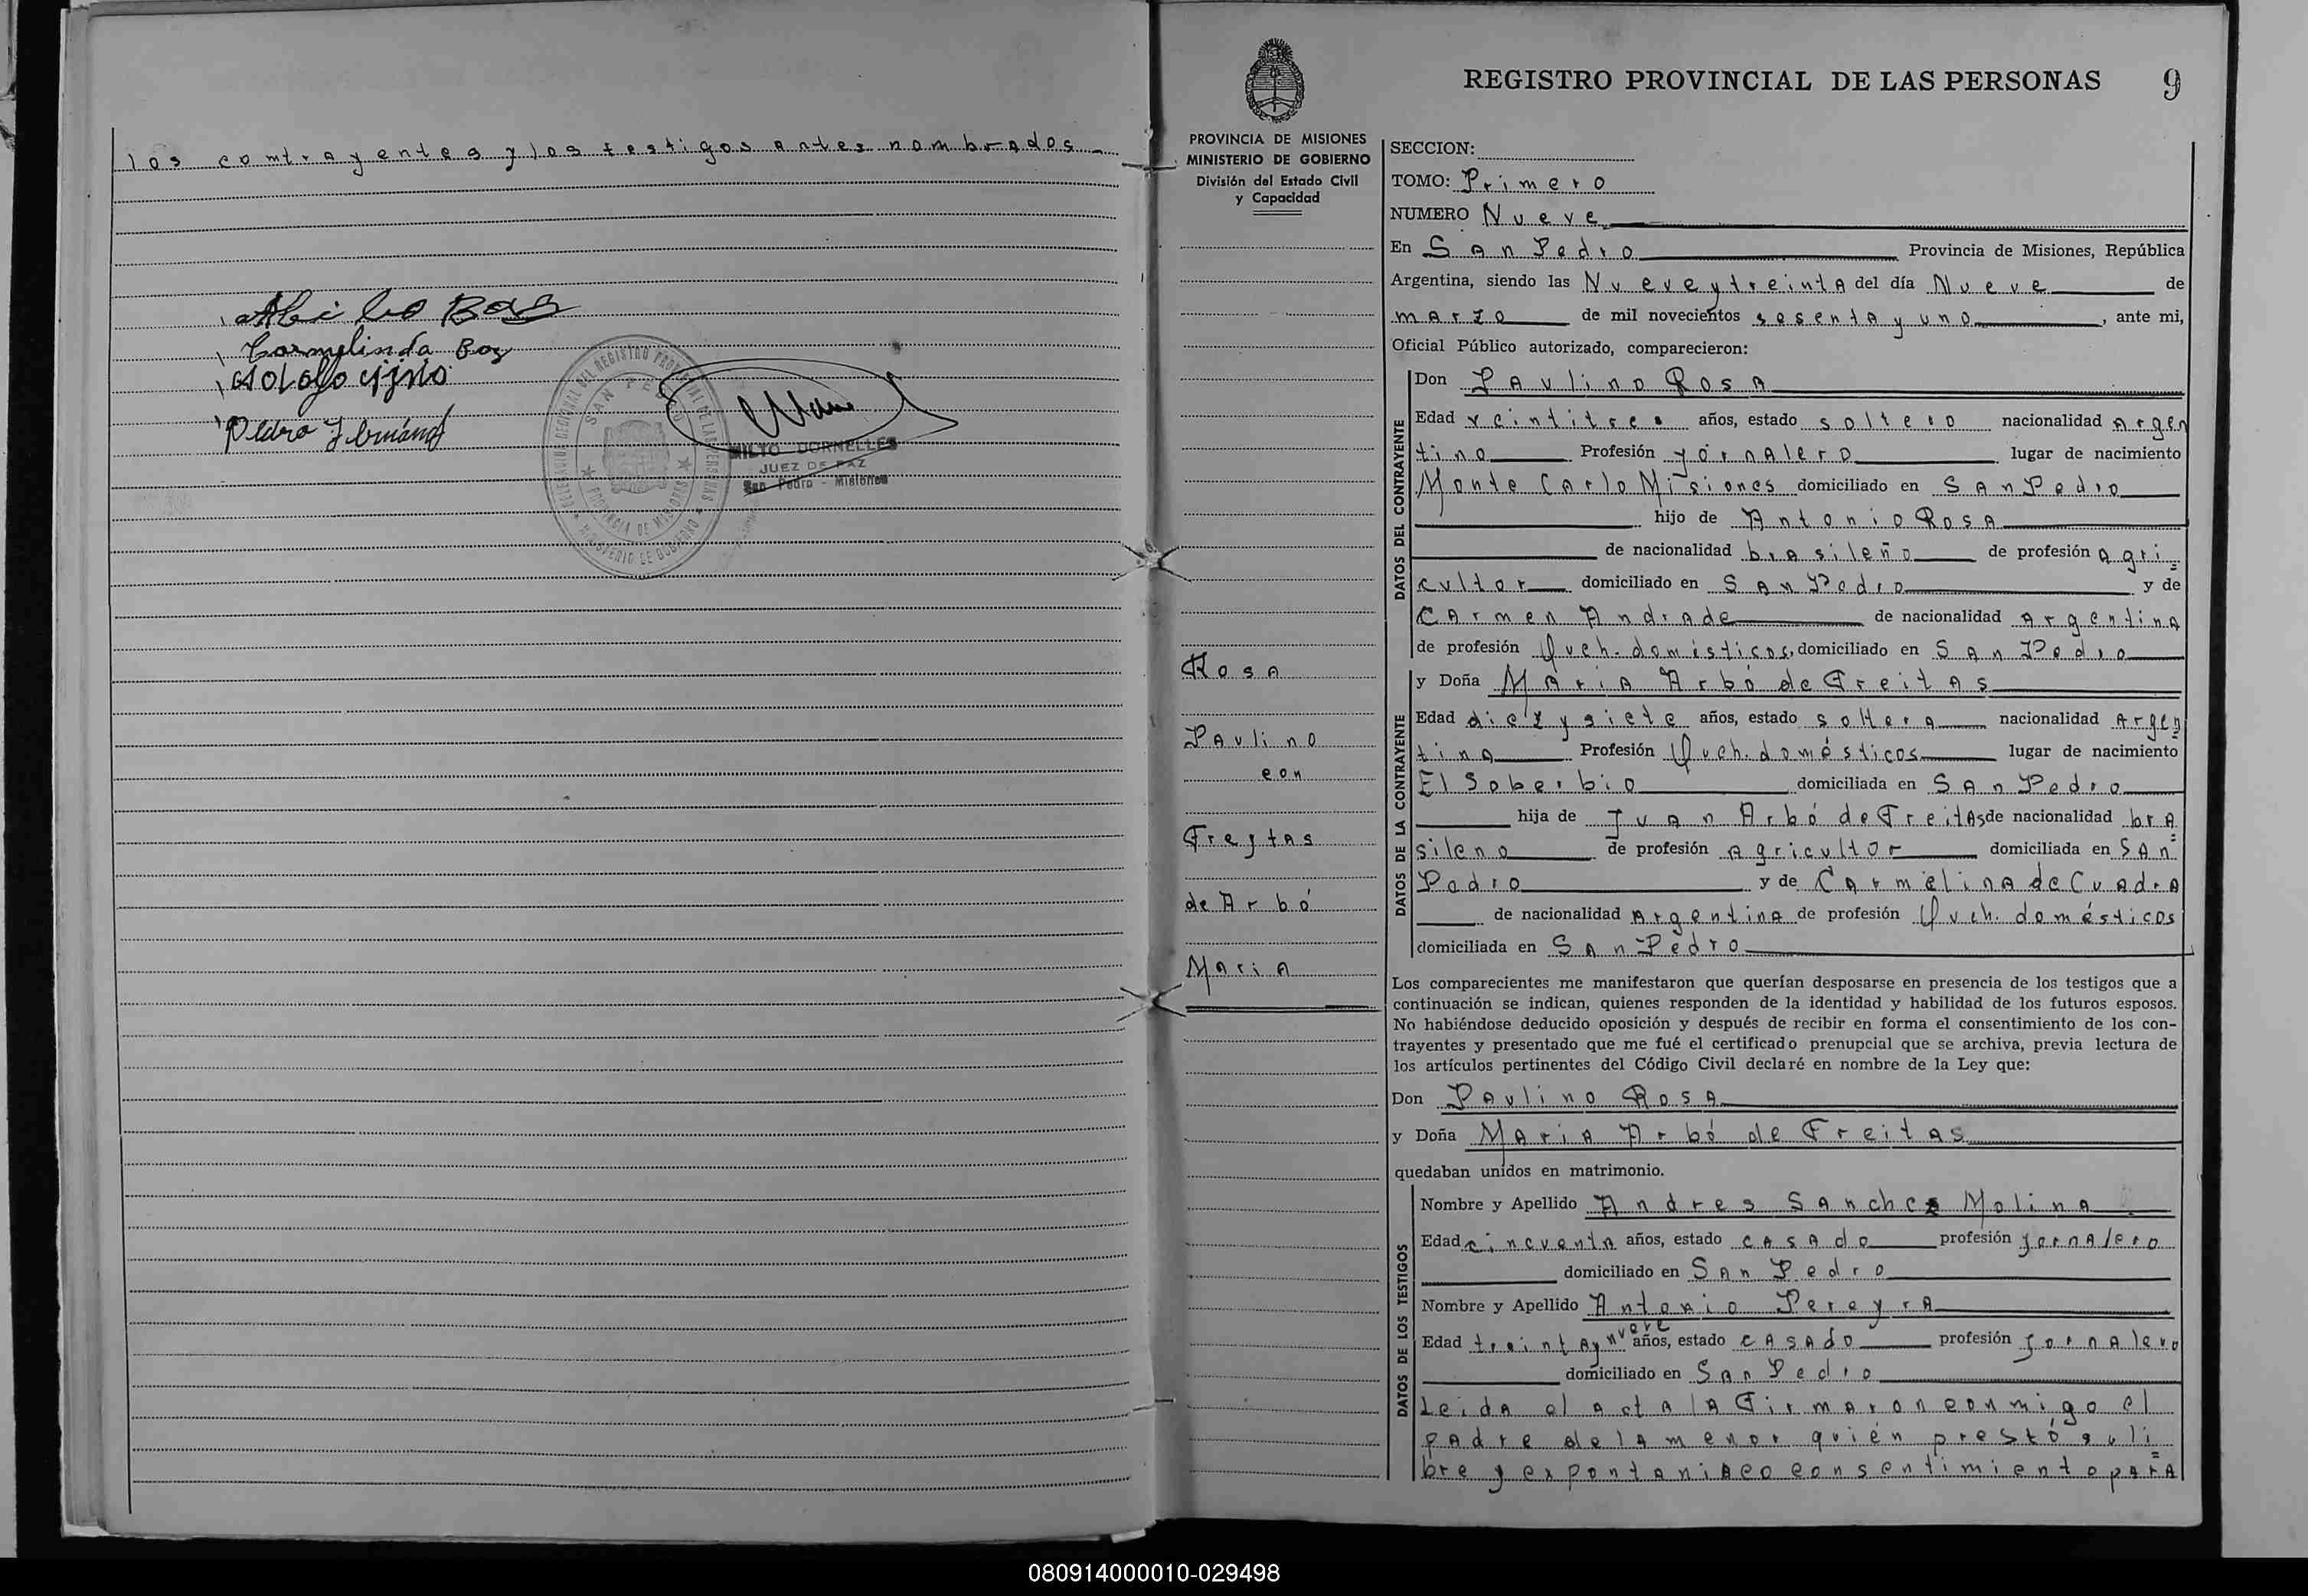 los contrayentes y los testigos antes nombrados
Carmelinda Boz
DELEGACION REGIONAL DEL REGISTRO PROVINCIAL DE LAS PERSONAS
SAN PEDRO
PROVINCIA DE MISIONES
MINISTERIO DE GOBIERNO
MILTO DORNELLES
JUEZ DE PAZ
San Pedro - Misiones
PROVINCIA DE MISIONES
MINISTERIO DE GOBIERNO
División del Estado Civil
y Capacidad
Rosa
Paulino
con
Freytas
de Arbó
Maria
REGISTRO PROVINCIAL DE LAS PERSONAS 9
SECCION:
TOMO: Primero
NUMERO Nueve
En San Pedro Provincia de Misiones, República
Argentina, siendo las Nueve y treinta del día Nueve de
marzo de mil novecientos sesenta y uno, ante mi,
Oficial Público autorizado, comparecieron:
DATOS DEL CONTRAYENTE
Don Paulino Rosa
Edad veintitres años, estado soltero nacionalidad Argen
tino Profesión jornalero lugar de nacimiento
Monte Carlo Misiones domiciliado en San Pedro
hijo de Antonio Rosa
de nacionalidad brasileño de profesión Agri=
cultor domiciliado en San Pedro y de
Carmen Andrade de nacionalidad Argentina
de profesión Queh. domésticos, domiciliado en San Pedro
DATOS DE LA CONTRAYENTE
y Doña Maria Arbó de Freitas
Edad diez y siete años, estado soltera nacionalidad Argen=
tina Profesión Queh. domésticos lugar de nacimiento
El Soberbio domiciliada en San Pedro
hija de Juan Arbó de Freitas de nacionalidad bra=
sileno de profesión Agricultor domiciliada en San
Pedro y de Carmelina de Cuadra
de nacionalidad Argentina de profesión Queh. domésticos
domiciliada en San Pedro
Los comparecientes me manifestaron que querían desposarse en presencia de los testigos que a
continuación se indican, quienes responden de la identidad y habilidad de los futuros esposos.
No habiéndose deducido oposición y después de recibir en forma el consentimiento de los con-
trayentes y presentado que me fué el certificado prenupcial que se archiva, previa lectura de
los artículos pertinentes del Código Civil declaré en nombre de la Ley que:
Don Paulino Rosa
y Doña Maria Arbó de Freitas
quedaban unidos en matrimonio.
DATOS DE LOS TESTIGOS
Nombre y Apellido Andres Sanchez Molina
Edad cincuenta años, estado casado profesión jornalero
domiciliado en San Pedro
Nombre y Apellido Antonio Pereyra
Edad treinta y nueve años, estado casado profesión jornalero
domiciliado en San Pedro
Leida el acta la Firmaron conmigo el
padre de la menor quién prestó su li=
bre y expontaniaeo consentimiento para
080914000010-029498